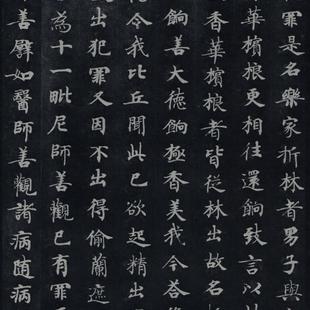 罪是名樂家折林者男子與
華檳榔更相往還餉致言以
香華檳榔者皆從林出故名
餉善大德餉極香美我今答
令我比丘聞此已欲起精出
出犯罪又因不出得偷蘭遮
為十一毗尼師善觀已有罪
善譬如醫師善觀諸病隨病